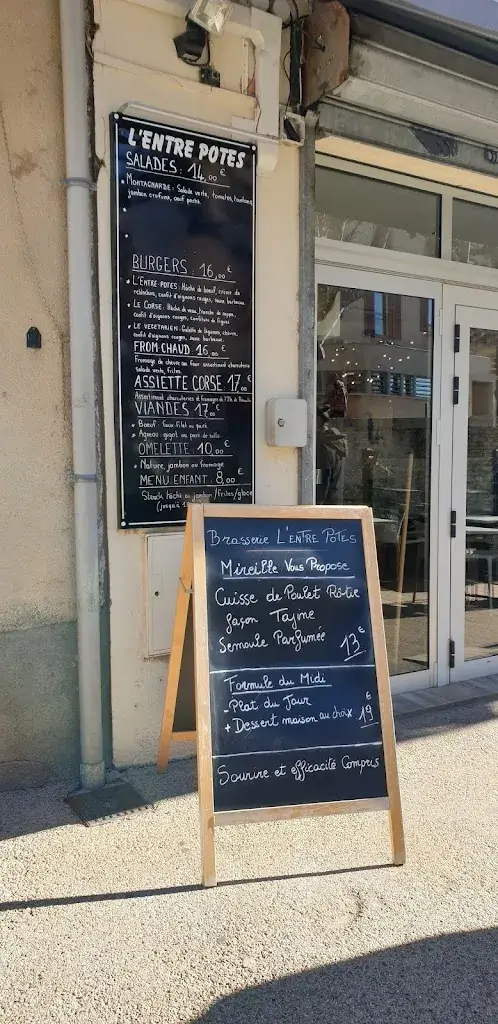 L'ENTRE POTES
SALADES : 14,00 €
• MONTAGNARDE : Salade verte, tomates,
jambon oeuf poché.
BURGERS : 16,00 €
• L'ENTRE-POTES : Hâché de boeuf, crème de
reblochon, confit d'oignons rouges, sauce barbecue.
• LE CORSE : Hâché de veau, tranche de coppa,
confit d'oignons rouges, confiture de figues
• LE VEGETARIEN : Galette de légumes, cheddar,
confit d'oignons rouges, sauce barbecue.
FROM-CHAUD : 16,00 €
Fromage de chèvre au four assortiment charcuterie
Salade verte, frites.
ASSIETTE CORSE : 17,00 €
Assortiment charcuteries et fromages de l'Île de Beauté
VIANDES : 17,00 €
• Boeuf : faux-filet ou pavé
• Agneau : gigot ou pavé de selle
OMELETTE : 10,00 €
• Nature, jambon ou fromage
MENU ENFANT : 8,00 €
Steack hâché ou jambon / Frites / glace
(jusqu'à
Brasserie L'ENTRE POTES
Mireille Vous Propose
Cuisse de Poulet Rôtie
façon Tajine
Semoule Parfumée 13 €
Formule du Midi
- Plat du Jour
+ Dessert maison au choix 19 €
Sourire et efficacité Compris